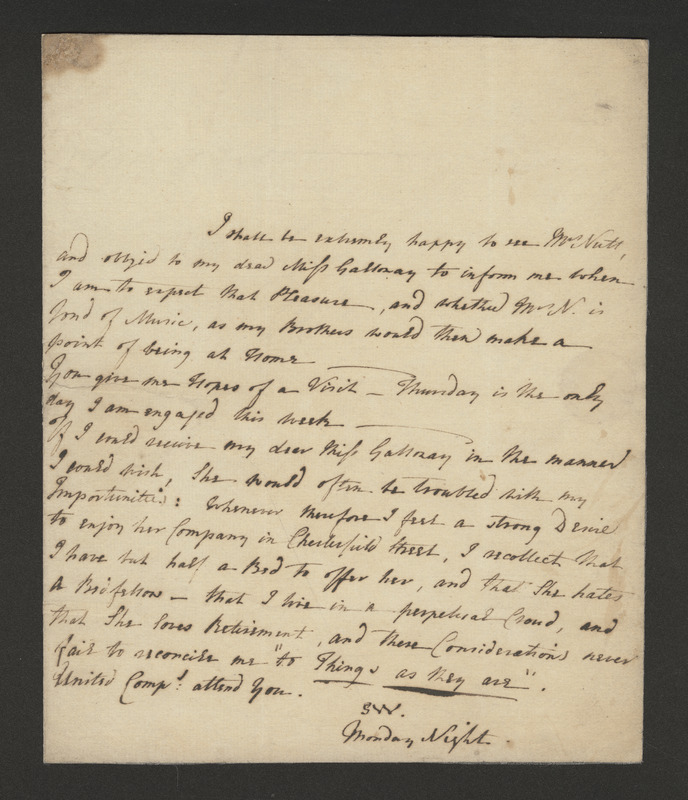 I shall be extremely happy to see Mr Nutt,
and obligd to my dear Miss Galloway to inform me when
I am to expect that Pleasure, and whether Mr N. is
fond of Music, as my Brothers would then make a
point of being at Home —
You give me Hopes of a Visit — Thursday is the only
day I am engaged this week —
If I could receive my dear Miss Galloway in the manner
I could wish, She would often be troubled with my
Importunities: Whenever therefore I feel a strong Desire
to enjoy her Company in Chesterfield Street, I recollect that
I have but half a Bed to offer her, and that She hates
a Bedfellow — that I live in a perpetual Croud, and
that She loves Retirement, and these Considerations never
fail to reconcile me "to Things as they are".
United Compts attend You.
SW.
Monday Night.